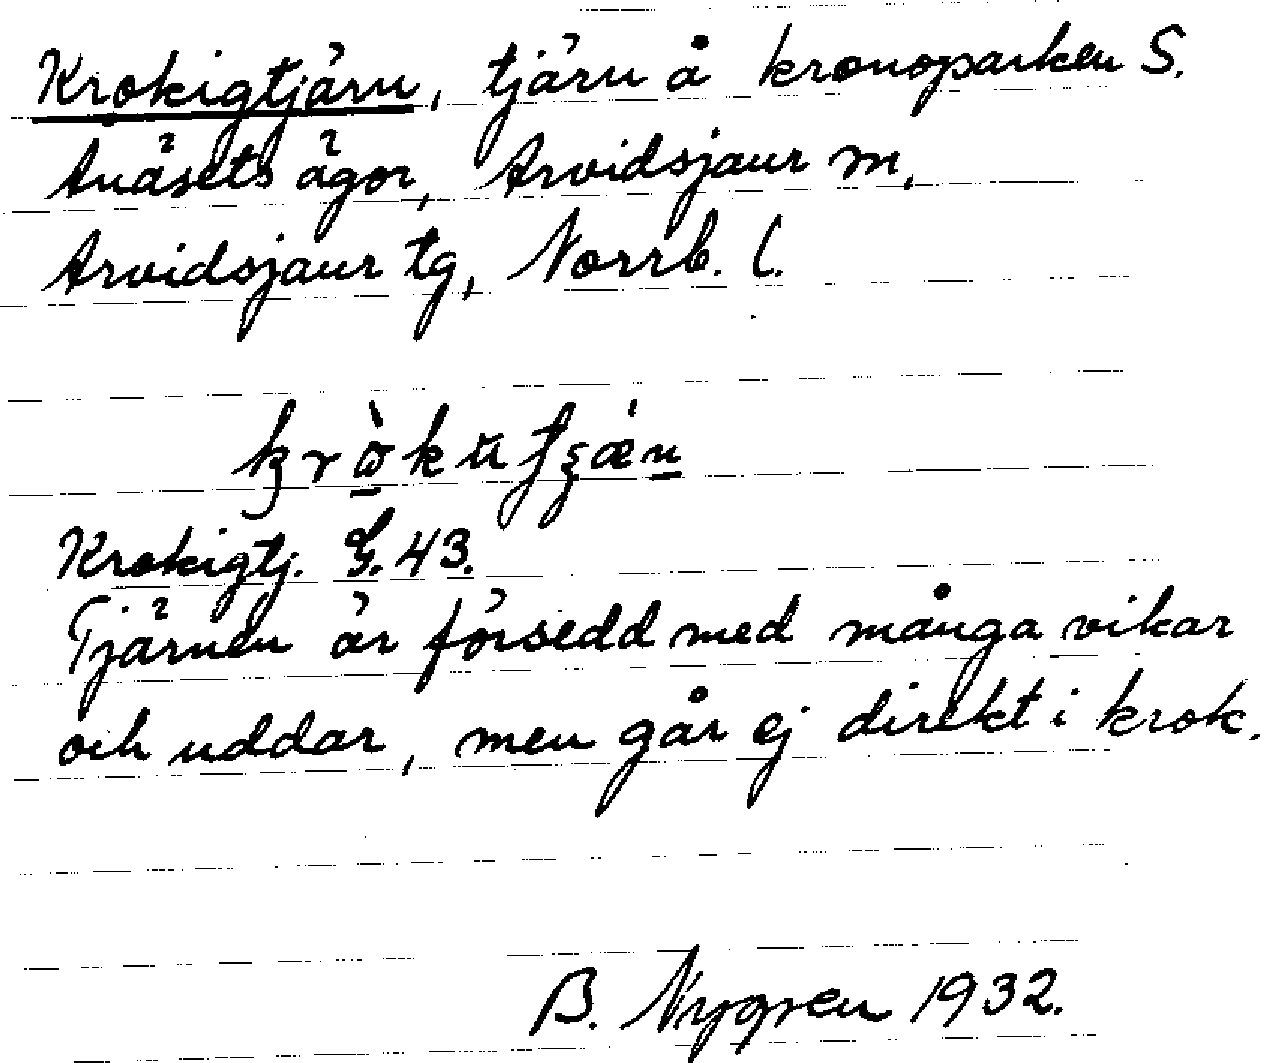 Krokigtjärn, tjärn å kronoparken S.
Anäsets ägor, Arvidsjaur m,
Arvidsjaur tg, Norrb. l.
Krokigtj. G. 43.
Tjärnen är försedd med många vikar
och uddar, men går ej direkt i krok.
B. Nygren 1932.